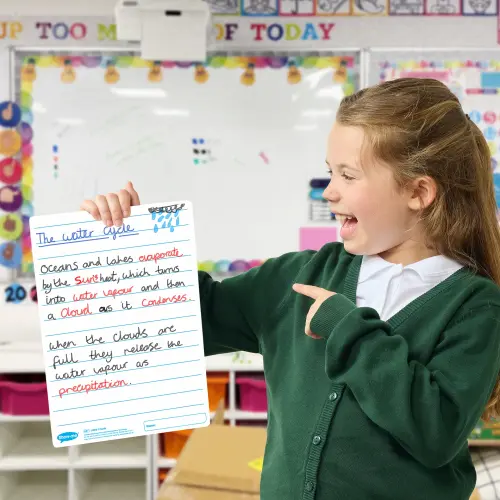 UP TOO M
OF TODAY
The water cycle
Oceans and lakes evaporate
by the Sun's heat, which turns
into water vapour and then
a Cloud as it Condenses.
when the clouds are
full they release the
water vapour as
precipitation.
Show-me
Name:
20